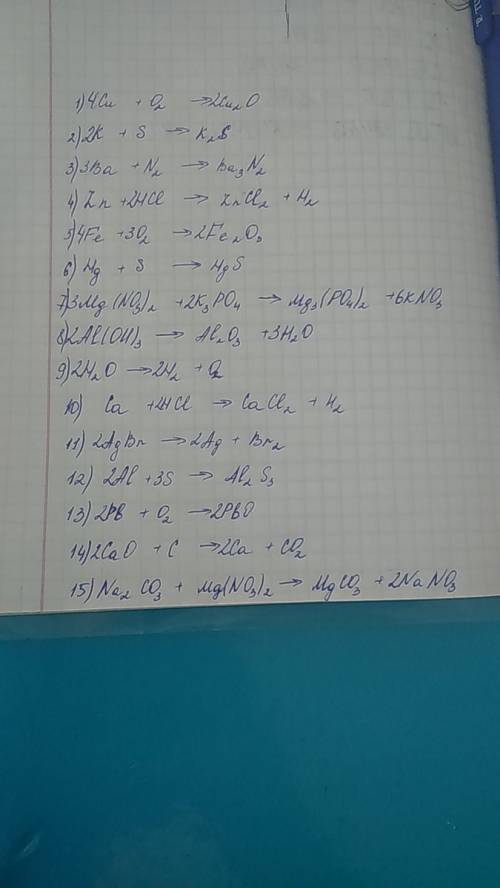 1) 4Cu + O₂ → 2Cu₂O
2) 2K + S → K₂S
3) 3Ba + N₂ → Ba₃N₂
4) Zn + 2HCl → ZnCl₂ + H₂
5) 4Fe + 3O₂ → 2Fe₂O₃
6) Hg + S → HgS
7) 3Mg(NO₃)₂ + 2K₃PO₄ → Mg₃(PO₄)₂ + 6KNO₃
8) 2Al(OH)₃ → Al₂O₃ + 3H₂O
9) 2H₂O → 2H₂ + O₂
10) Ca + 2HCl → CaCl₂ + H₂
11) 2AgBr → 2Ag + Br₂
12) 2Al + 3S → Al₂S₃
13) 2PB + O₂ → 2PBO
14) 2CaO + C → 2Ca + CO₂
15) Na₂CO₃ + Mg(NO₃)₂ → MgCO₃ + 2NaNO₃